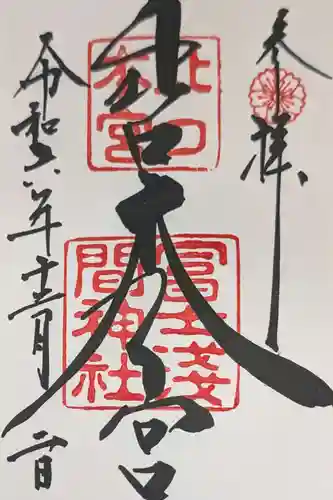 参拝
北口本宮
北口
本宮
冨士淺
間神社
令和六年十二月二日